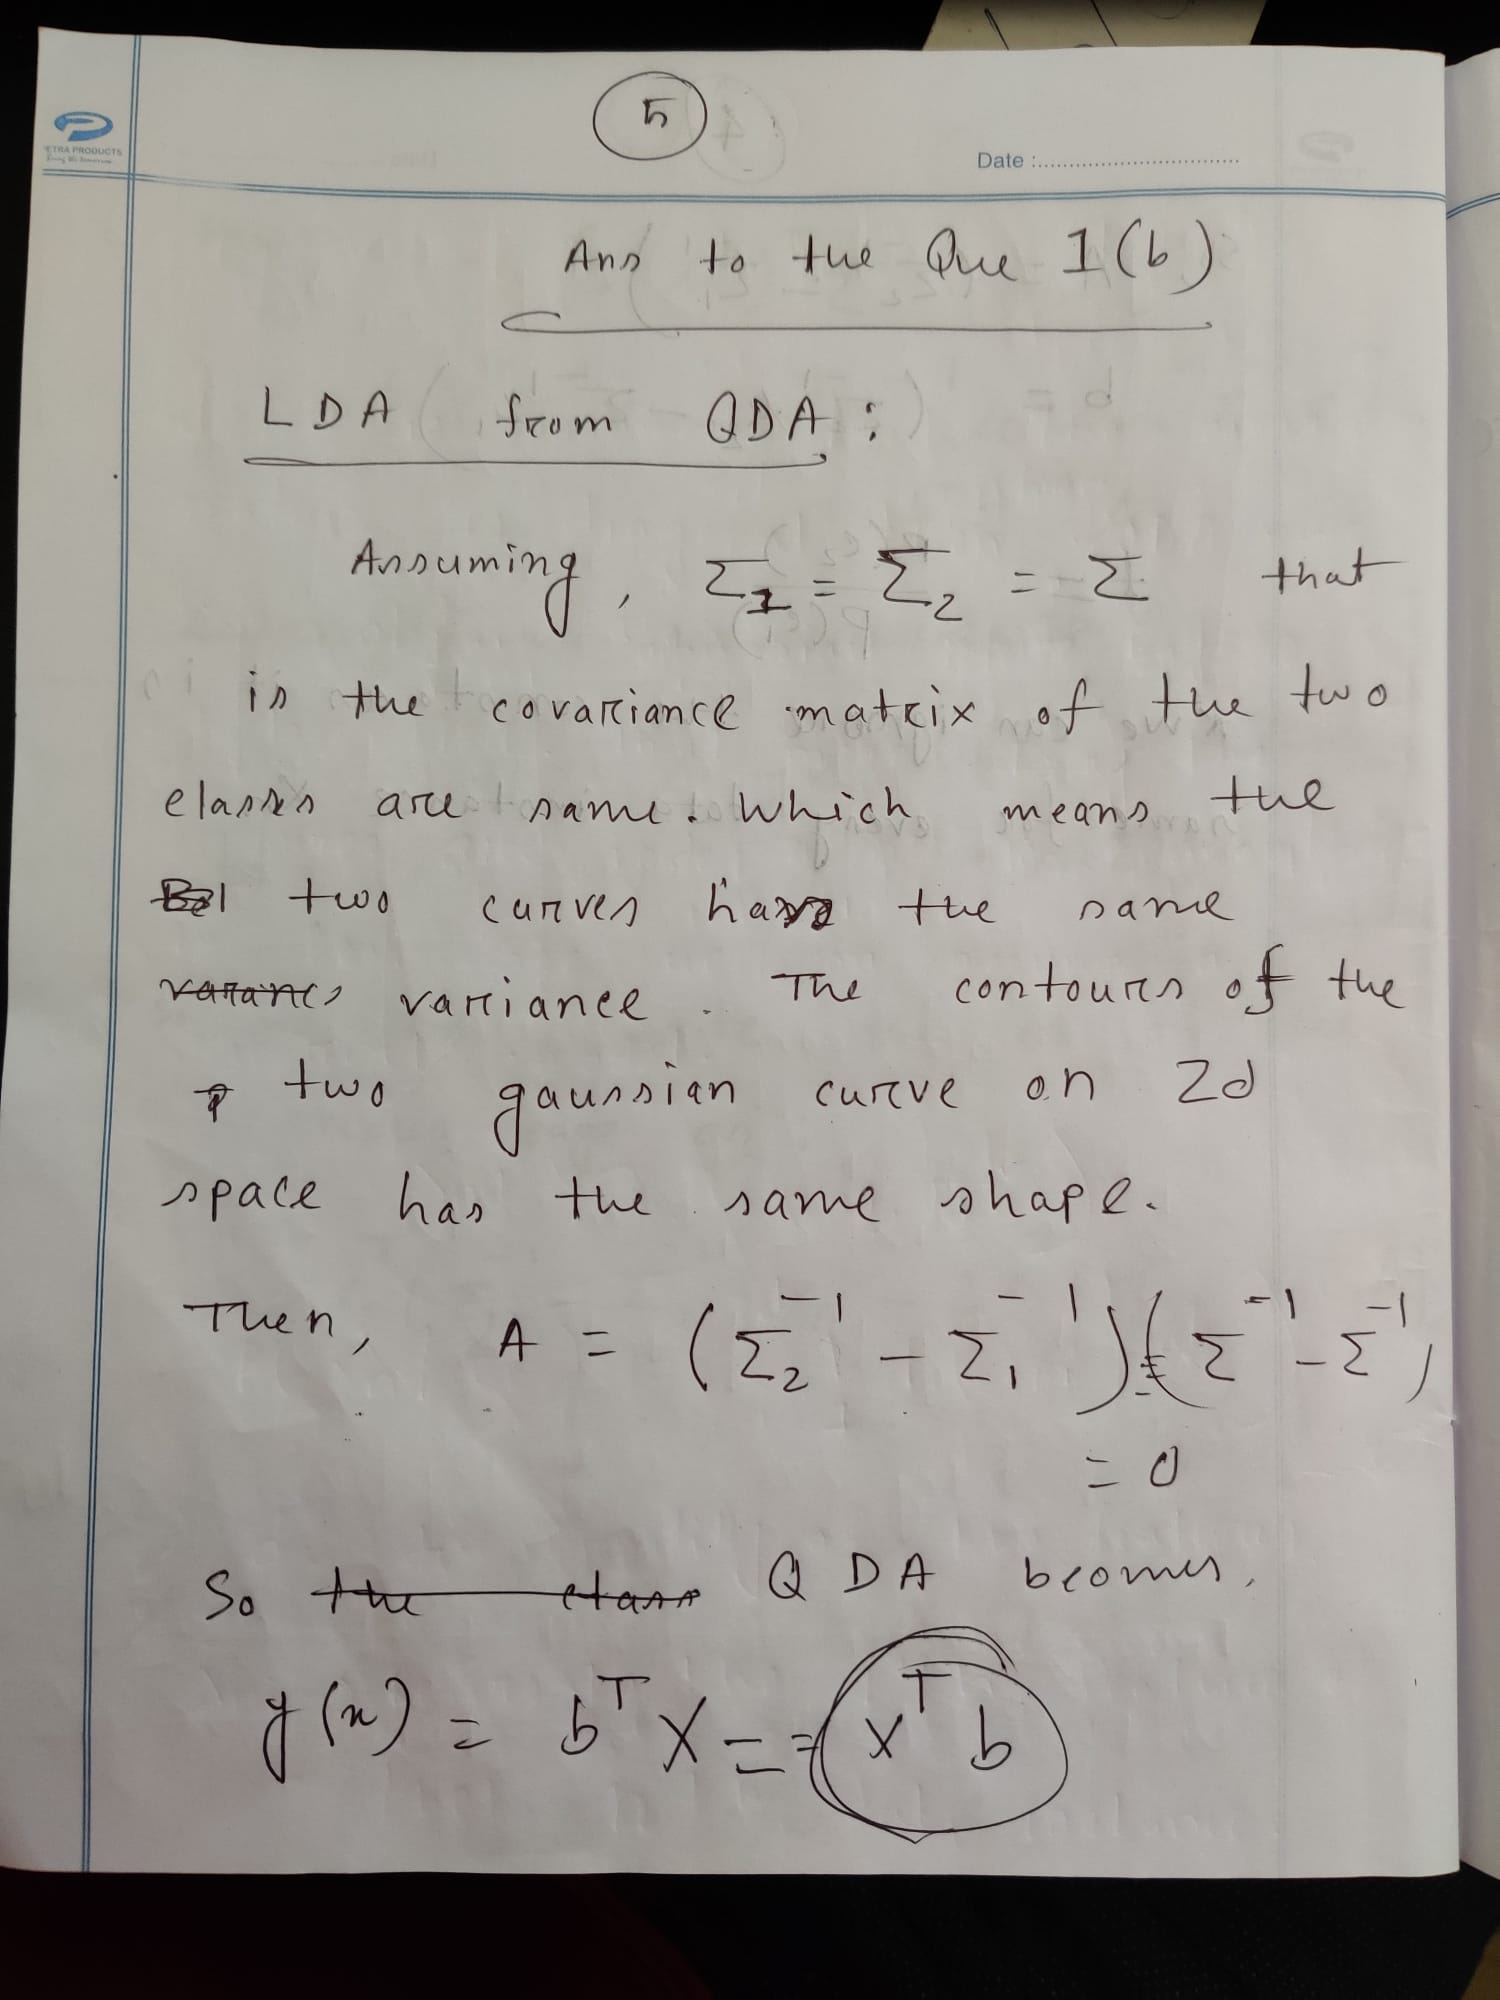 5
ETRA PRODUCTS
Date :
Ans to the Que 1(b)
LDA from QDA :
Assuming, Σ₁ = Σ₂ = Σ that
is the covariance matrix of the two
classes are same. Which means the
two curves have the same
variance. The contours of the
two gaussian curve on 2d
space has the same shape.
Then, A = (Σ₂⁻¹ - Σ₁⁻¹) = (Σ⁻¹ - Σ⁻¹)
= 0
So the class QDA becomes,
y(x) = bᵀX = = xᵀb